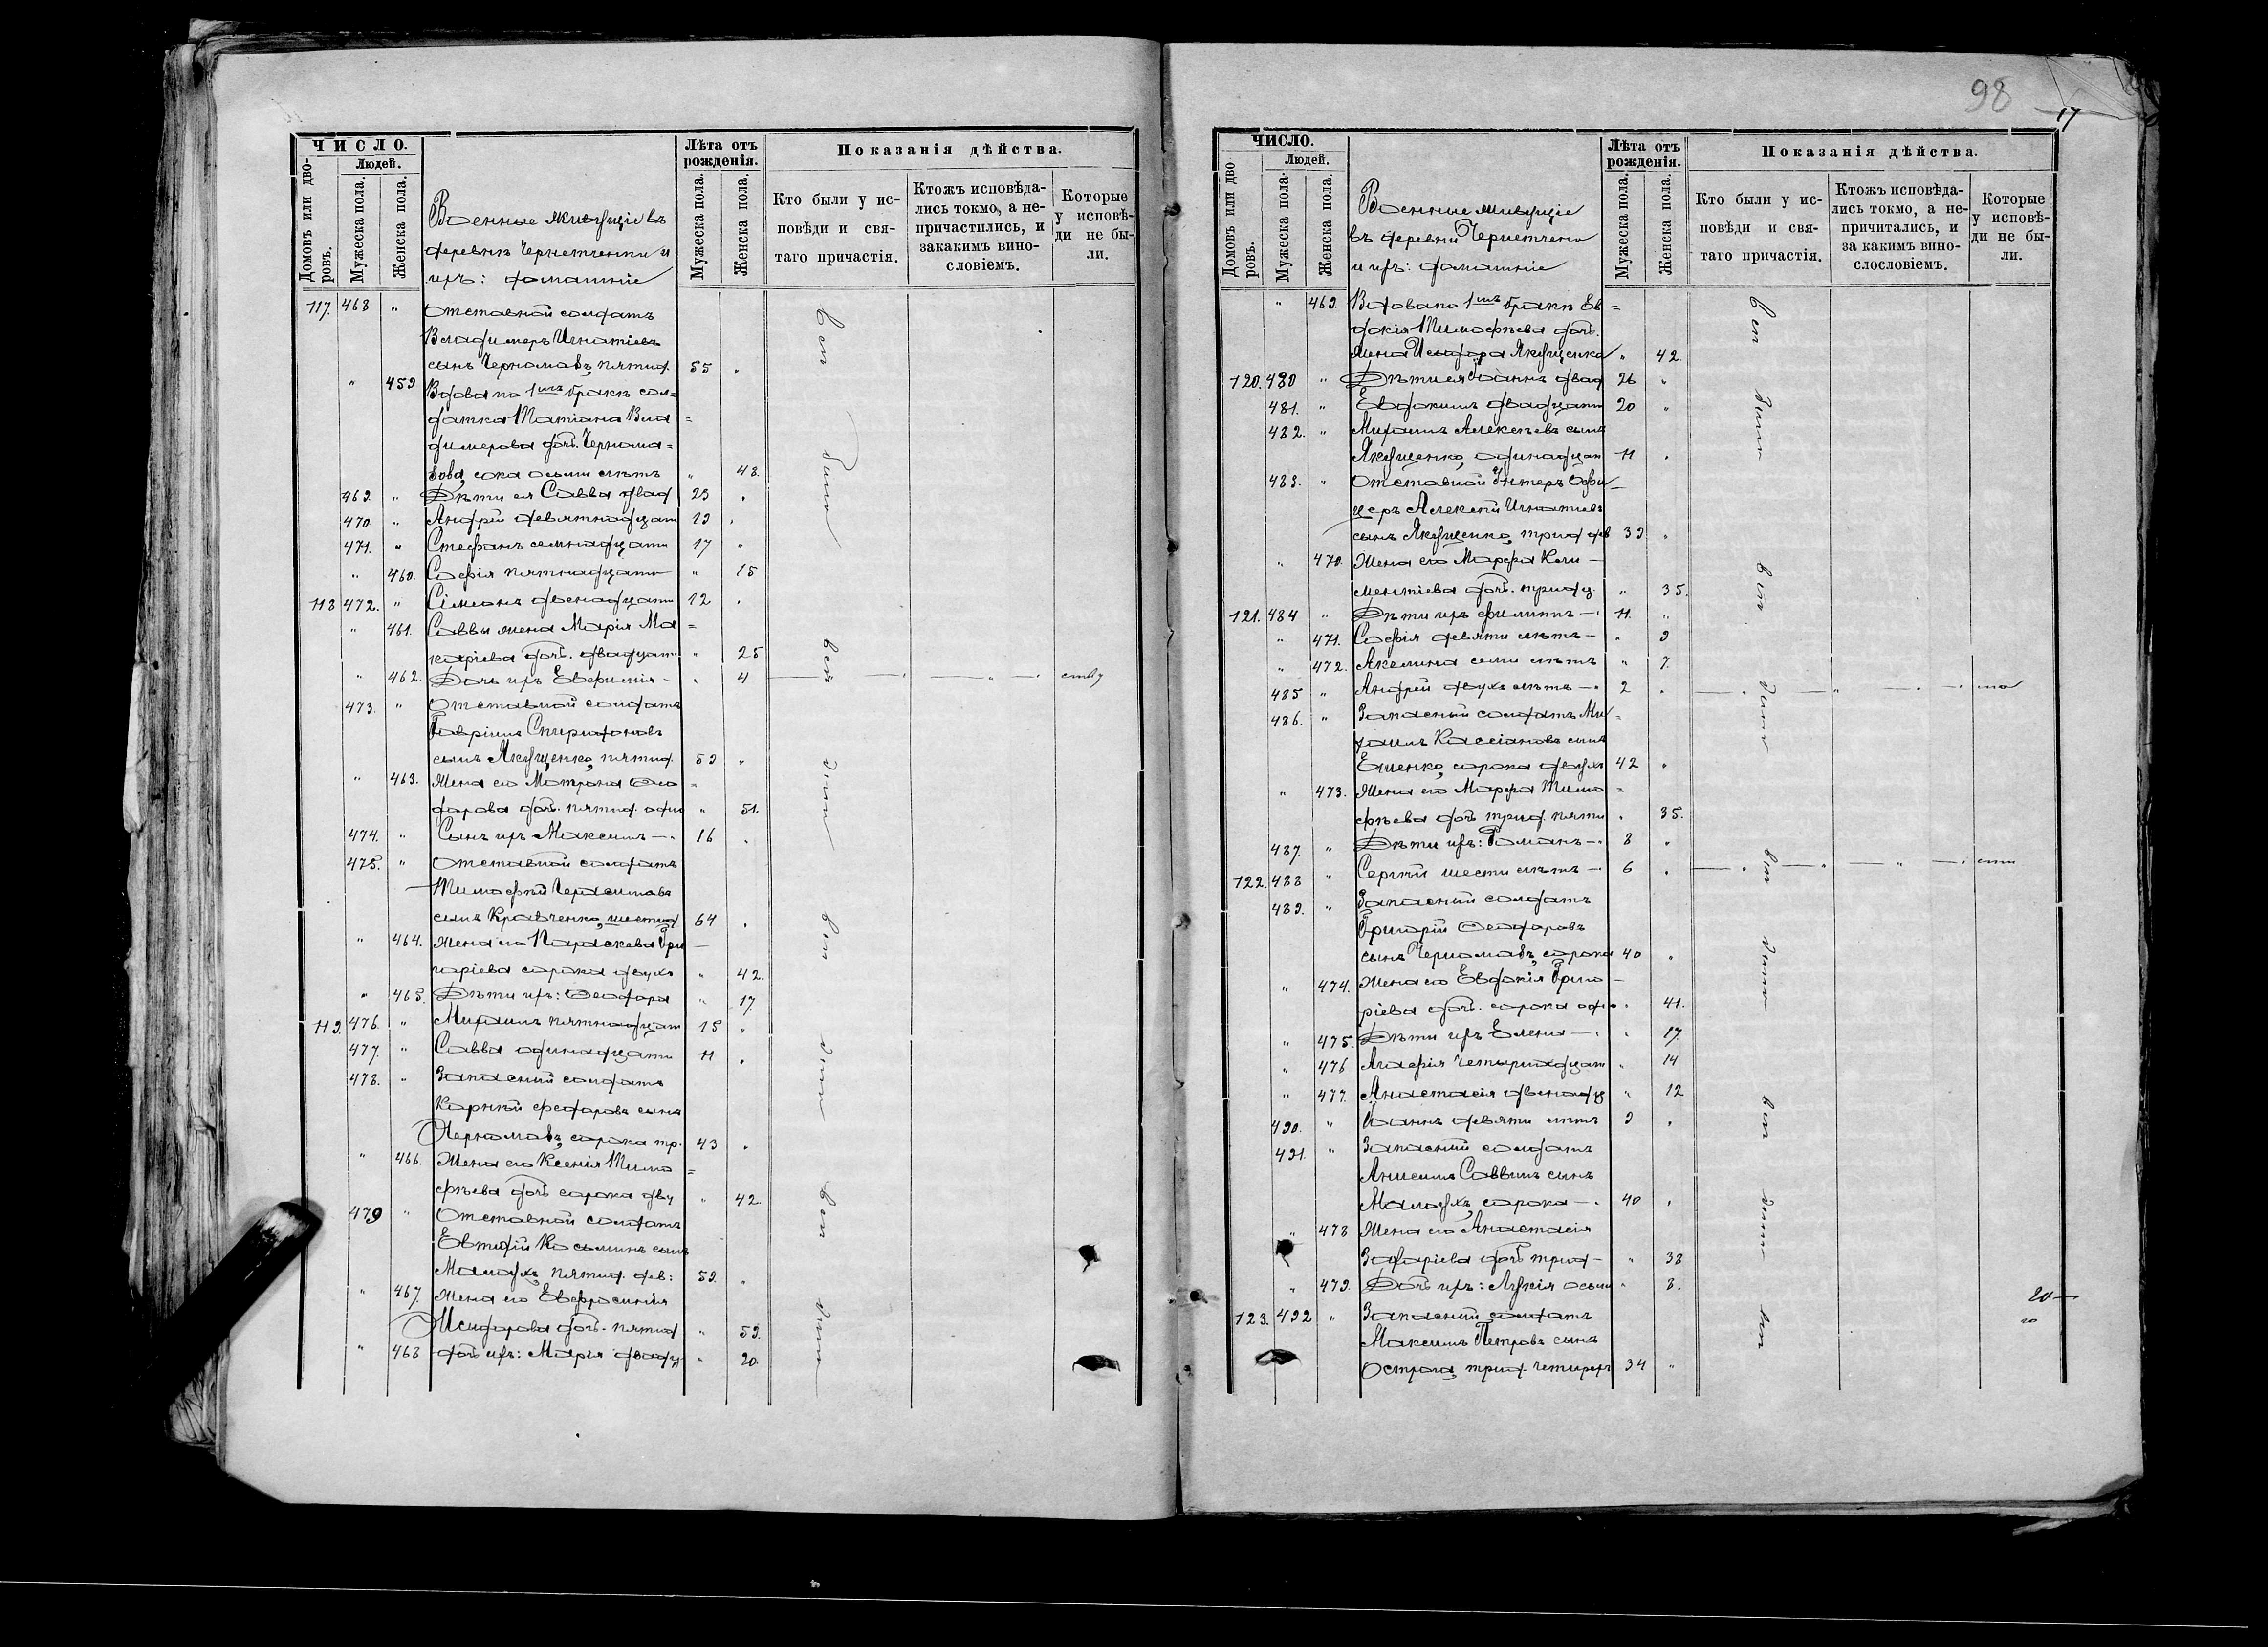 98
17
ЧИСЛО.
Людей.
Домовъ или дво-
ровъ.
Мужеска пола.
Женска пола.
Военные живущіе въ
деревнѣ Чернетченки и
ихъ: домашніе
Лѣта отъ
рожденія.
Мужеска пола.
Женска пола.
Показанія дѣйства.
Кто были у ис-
повѣди и свя-
таго причастія.
Ктожъ исповѣда-
лись токмо, а не-
причастились, и
закакимъ вино-
словіемъ.
Которые
у исповѣ-
ди не бы-
ли.
117. 468 " Отставной солдатъ
Владимеръ Игнатіевъ
сынъ пятид. 55 "
" 459 Вдова по 1мъ бракѣ сол=
датка Татіана Вла=
димерова доч.
сока осьми лѣтъ " 48.
469. " Дѣти ея Савва двад 23 "
470. " Андрей девятнадцати 19 "
471. " Стефанъ семнадцати 17 "
" 460. Софія пятнадцати " 15
118 472. " Сімеонъ двенадцати 12 "
" 461. Саввы жена Марія Ма=
каріева доч. двадцати " 25
" 462. Дочь ихъ Евфимія - " 4
473. " Отставной солдатъ
Гавріилъ Спиридоновъ
сынъ Якущенко, пятид. 59 "
" 463. Жена его Матрона Ѳео=
дорова доч. пятид. одн " 51.
474. " Сынъ ихъ Максимъ - 16 "
475. " Отставной солдатъ
Тимофѣй Герасимовъ
сынъ Кравченко, шестид 64 "
" 464. Жена его Параскева Гри-
горіева сорока двухъ " 42.
" 465. Дѣти ихъ: Ѳеодора " 17.
119. 476. " Михаилъ пятнадцат 15 "
477. " Савва одинадцати 11 "
478. " Запасный солдатъ
Корнѣй Федоровъ сынъ
сорока тр. 43 "
" 466. Жена его Ксенія Тимо=
фѣева доч сорока дву " 42.
479 " Отставной солдатъ
Евтифій Косьминъ сынъ
пятид. дев: 59. "
" 467. Жена его Евфросинія
Исидорова доч. пятид " 59.
" 468 доч ихъ: Марія двадц. " 20.
ЧИСЛО.
Людей.
Домовъ или дво
ровъ.
Мужеска пола.
Женска пола.
Военные живущіе
въ деревни Чернетчено
и ихъ: домашніе
Лѣта отъ
рожденія.
Мужеска пола.
Женска пола.
Показанія дѣйства.
Кто были у ис-
повѣди и свя-
таго причастія.
Ктожъ исповѣда-
лись токмо, а не-
причитались, и
за какимъ вино-
слословіемъ.
Которые
у исповѣ-
ди не бы-
ли.
" 469. Вдова по 1мъ бракѣ Ев=
докія Тимофѣева доч.
жена Исидора Якущенко " 42.
120. 480 " Дѣти ея Іоаннъ двад 26 "
481. " Евдокимъ двадцати 20 "
482. " Михаилъ Алексѣевъ сынъ
Якущенко, одинадцат 11 "
483. " Отставной Унтеръ Офи-
церъ Алексѣй Игнатіевъ
сынъ Якущенко, трид дев 39 "
" 470. Жена его Марфа Кли-
ментіева доч. тридц. " 35.
121. 484 " Дѣти ихъ Филипъ - 11. "
" 471. Софія девяти лѣтъ - " 9
" 472. Акелина семи лѣтъ " 7.
485 " Андрей двухъ лѣтъ - 2 "
486. " Запасный солдатъ Ми=
хаилъ Кассіановъ сынъ
Ешенко, сорока двухъ 42 "
" 473. Жена его Марфа Тимо=
фѣева доч трид. пяти " 35.
487. " Дѣти ихъ: Романъ - 8 "
122. 488 " Сергѣй шести лѣтъ - 6 "
489. " Запасный солдатъ
Григорій Ѳеодоровъ
сынъ сорока 40 "
" 474. Жена его Евдокія Григо-
ріева доч. сорока одно " 41.
" 475. Дѣти ихъ Елена - " 17.
" 476 Агафія Четырнадцат " 14
" 477. Анастасія двенадц " 12
490. " Іоаннъ девяти лѣтъ 9 "
491. " Запасный солдатъ
Анисимъ Саввинъ сынъ
сорока - 40 "
" 478 Жена его Анастасія
Захаріева доч трид - " 38
" 479. Доч ихъ: Лукія осьми " 8.
123. 492 " Запасный солдатъ
Максимъ Петровъ сынъ
трид. четырехъ 34 "